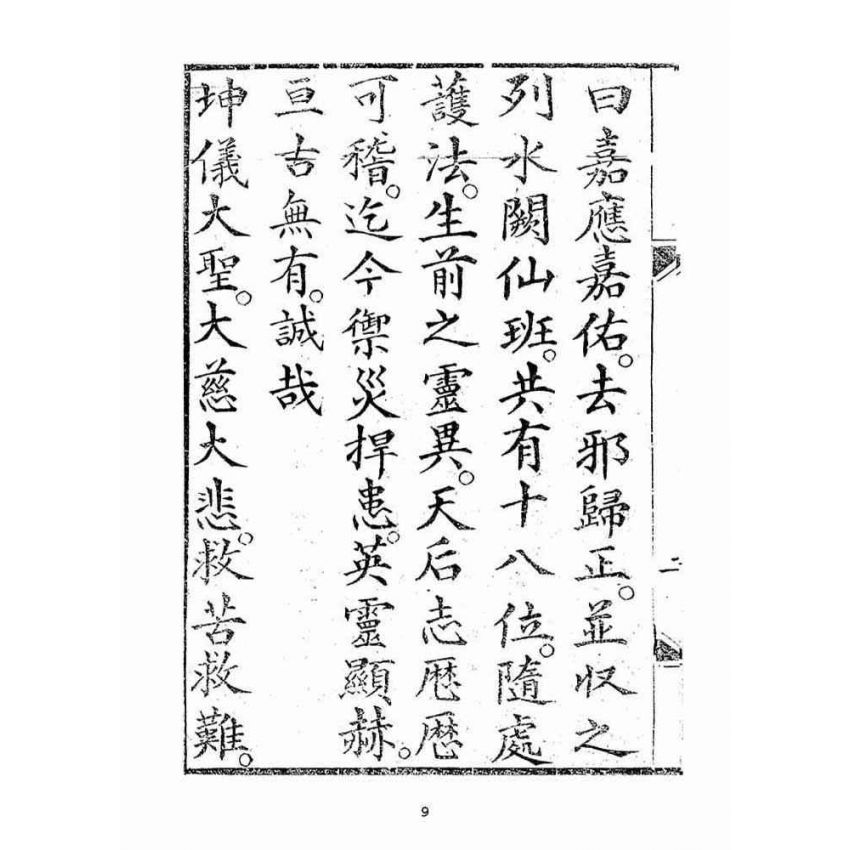 曰嘉應嘉佑。去邪歸正。並収之
列水闕仙班。共有十八位。隨處
護法。生前之靈異。天后志歷歷
可稽。迄今禦災捍患。英靈顯赫。
亘古無有。誠哉
坤儀大聖。大慈大悲。救苦救難。
二
9